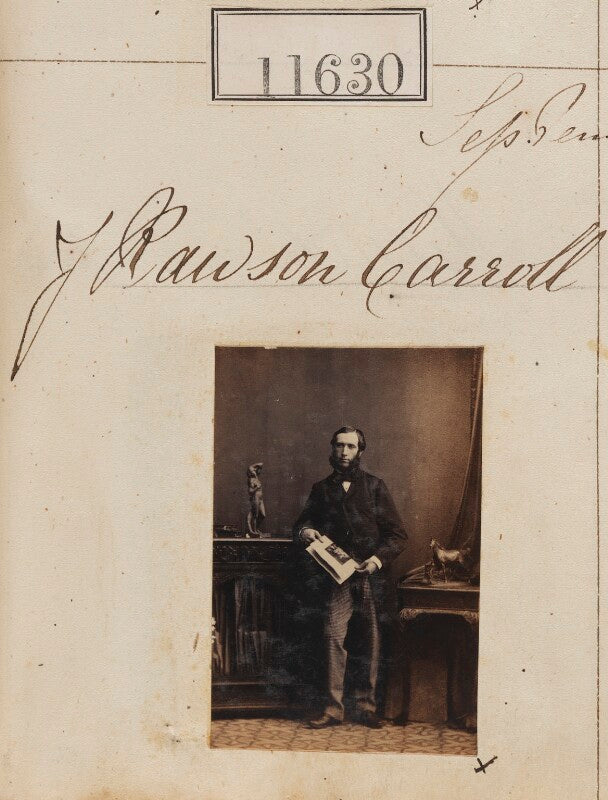 11630
J Rawson Carroll